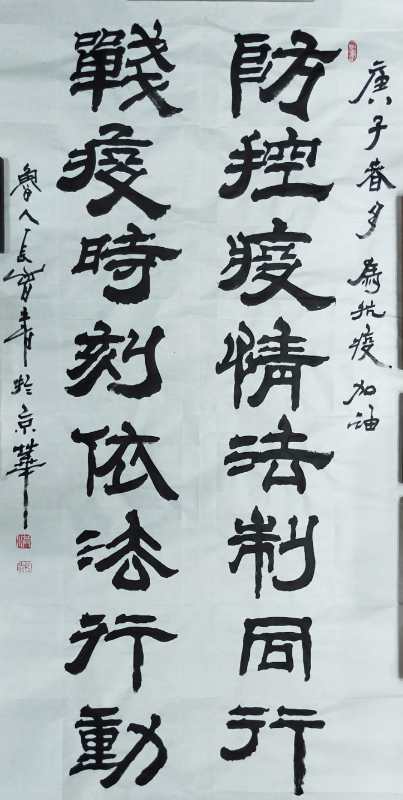 庚子春夕為抗疫加油
防控疫情法制同行
戰疫時刻依法行動
魯人長嶺書於京華